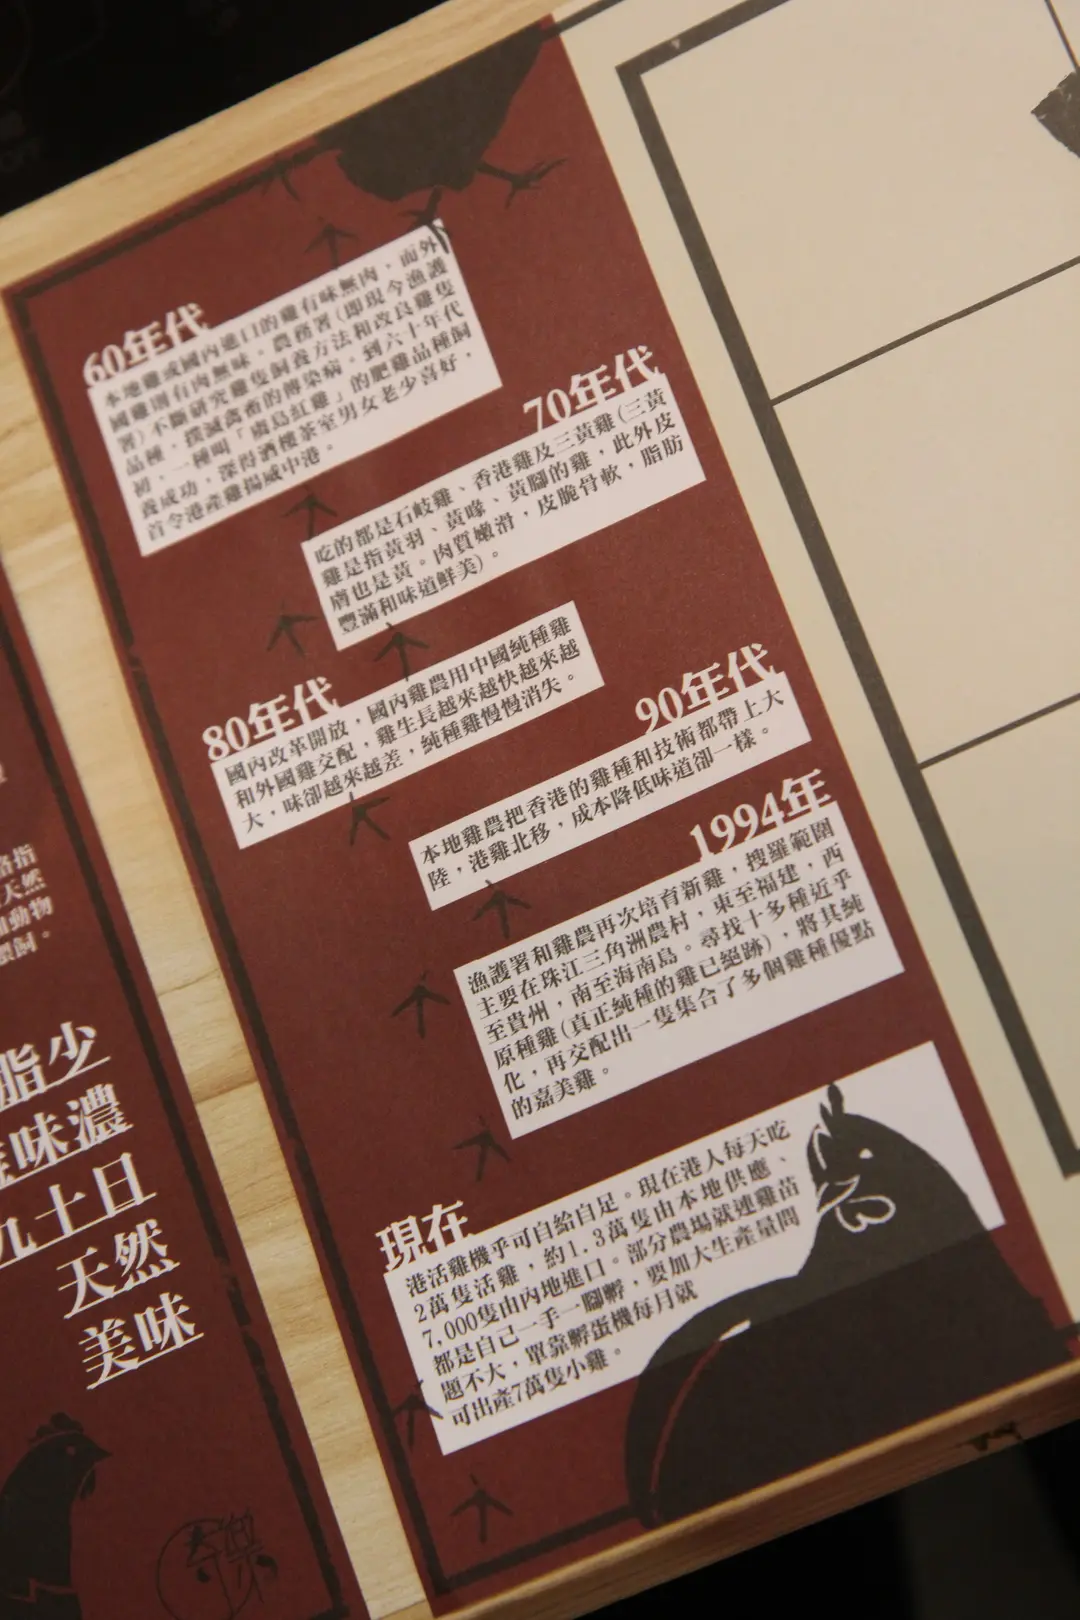 60年代
本地雞或國內進口的雞有味無肉，而外
國雞則有肉無味。農務署(即現今漁護
署)不斷研究雞隻飼養方法和改良雞隻
品種，撲滅禽畜的傳染病。到六十年代
初，一種叫「鹿島紅雞」的肥雞品種飼
養成功，深得酒樓茶室男女老少喜好，
首令港產雞揚威中港。
70年代
吃的都是石岐雞、香港雞及三黃雞(三黃
雞是指黃羽、黃喙、黃腳的雞，此外皮
膚也是黃。肉質嫩滑，皮脆骨軟，脂肪
豐滿和味道鮮美)。
80年代
國內改革開放，國內雞農用中國純種雞
和外國雞交配，雞生長越來越快越來越
大，味卻越來越差，純種雞慢慢消失。
90年代
本地雞農把香港的雞種和技術都帶上大
陸，港雞北移，成本降低味道卻一樣。
1994年
漁護署和雞農再次培育新雞，搜羅範圍
主要在珠江三角洲農村，東至福建，西
至貴州，南至海南島。尋找十多種近乎
原種雞(真正純種的雞已絕跡)，將其純
化，再交配出一隻集合了多個雞種優點
的嘉美雞。
現在
港活雞機乎可自給自足。現在港人每天吃
2萬隻活雞，約1.3萬隻由本地供應、
7,000隻由內地進口。部分農場就連雞苗
都是自己一手一腳孵，要加大生產量問
題不大，單靠孵蛋機每月就
可出產7萬隻小雞。
指
天然
動物
飼。
脂少
味濃
九十日
天然
美味